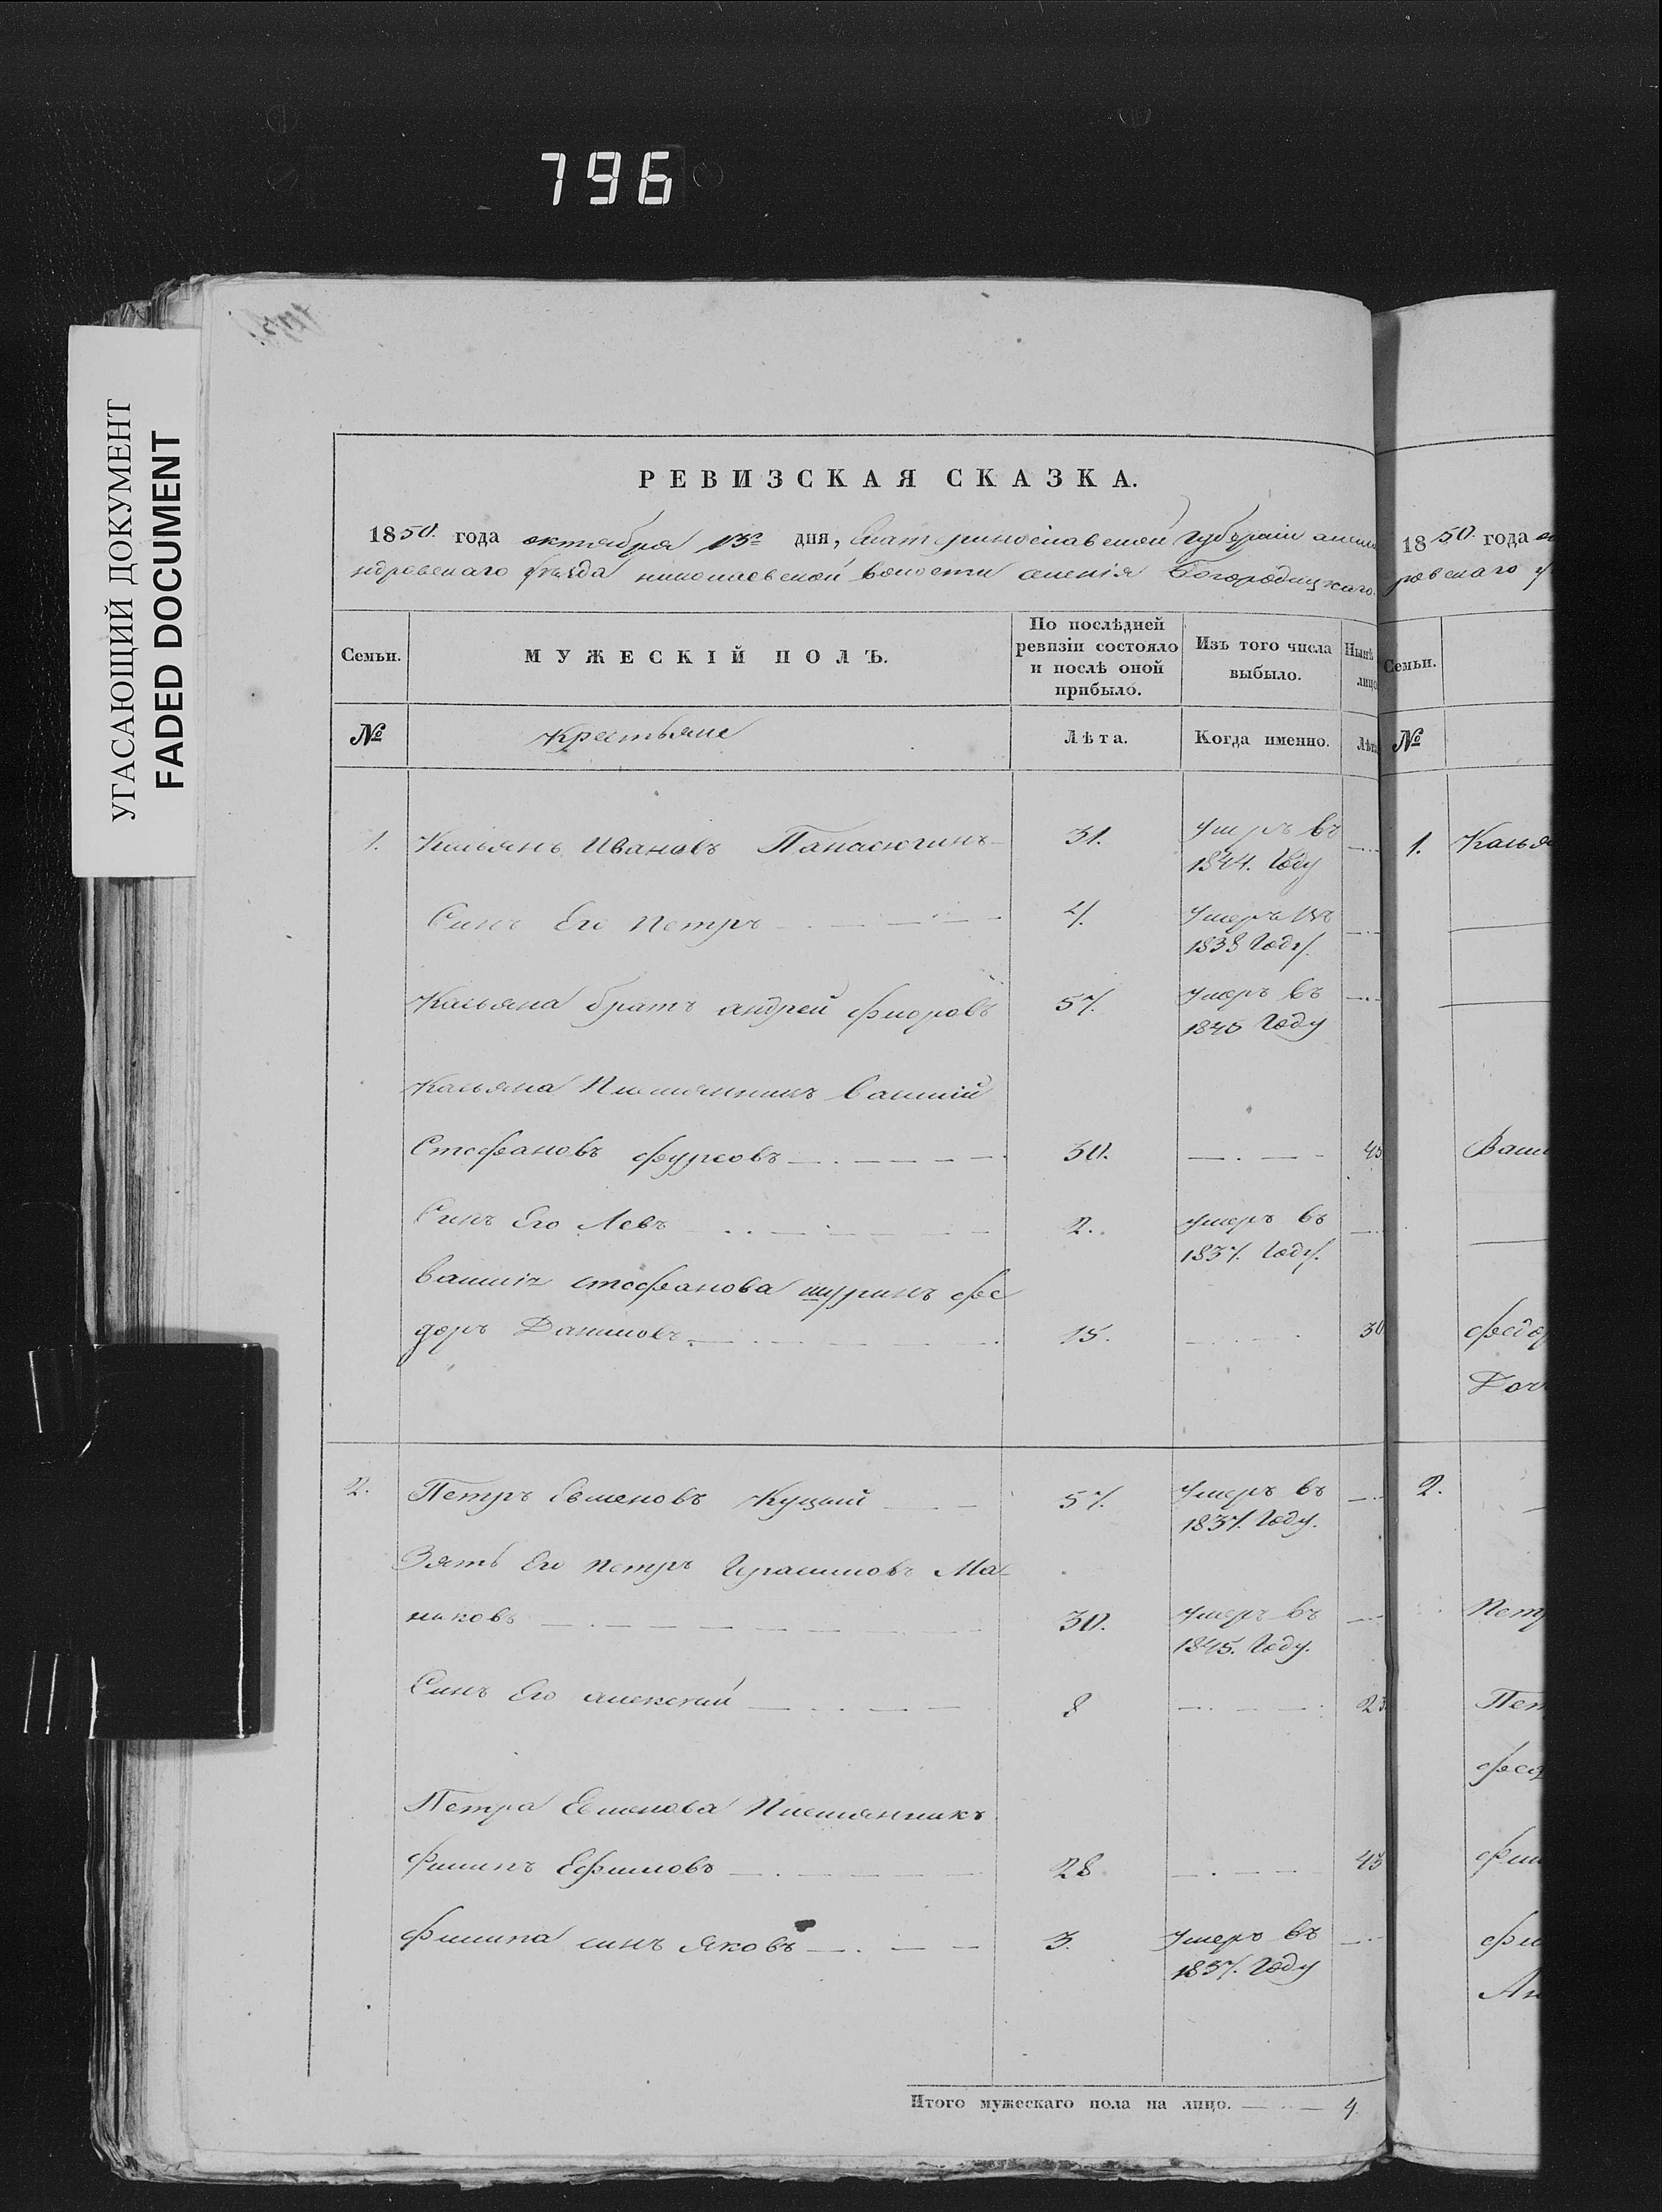 796
УГАСАЮЩИЙ ДОКУМЕНТ
FADED DOCUMENT
РЕВИЗСКАЯ СКАЗКА.
1850. года октября 13го дня, Екатеринославской Губерніи алекса
ндровскаго уѣзда николаевской волости селенія Богородицкаго.
Семьи.
МУЖЕСКІЙ ПОЛЪ.
По послѣдней ревизіи состояло и послѣ оной прибыло.
Изъ того числа выбыло.
Нынѣ лицо
№
крестьяне
Лѣта.
Когда именно.
Лѣта
1. Касьянъ Ивановъ 31. Умеръ въ
1844. Году
Синъ Его Петръ 4. Умеръ въ
1838 Году.
Касьяна братъ андрей 57. Умеръ въ
1840 Году
Касьяна Племянникъ Василій
Стефановъ фурсовъ 30. 45
Синъ Его Левъ 2. умеръ въ
1837. Году.
василія стефанова шуринъ фе
доръ Даниловъ 15. 30
2. Петръ Евменовъ Куцый 57. Умеръ въ
1837. Году.
Зять Его Петръ Герасимовъ Ма
наковъ 30. Умеръ въ
1845. Году.
Синъ Его алексей 8 23
Петра Евменова Племянникъ
Филипъ Ефимовъ 28 43
Филипа синъ яковъ 3. Умеръ въ
1837. Году
Итого мужескаго пола на лицо. 4.
1850 года
ровскаго у
Семьи.
№
1. Касья
Васи
федо
Доч
2.
Петр
Пет
фед
фил
фил
Ан